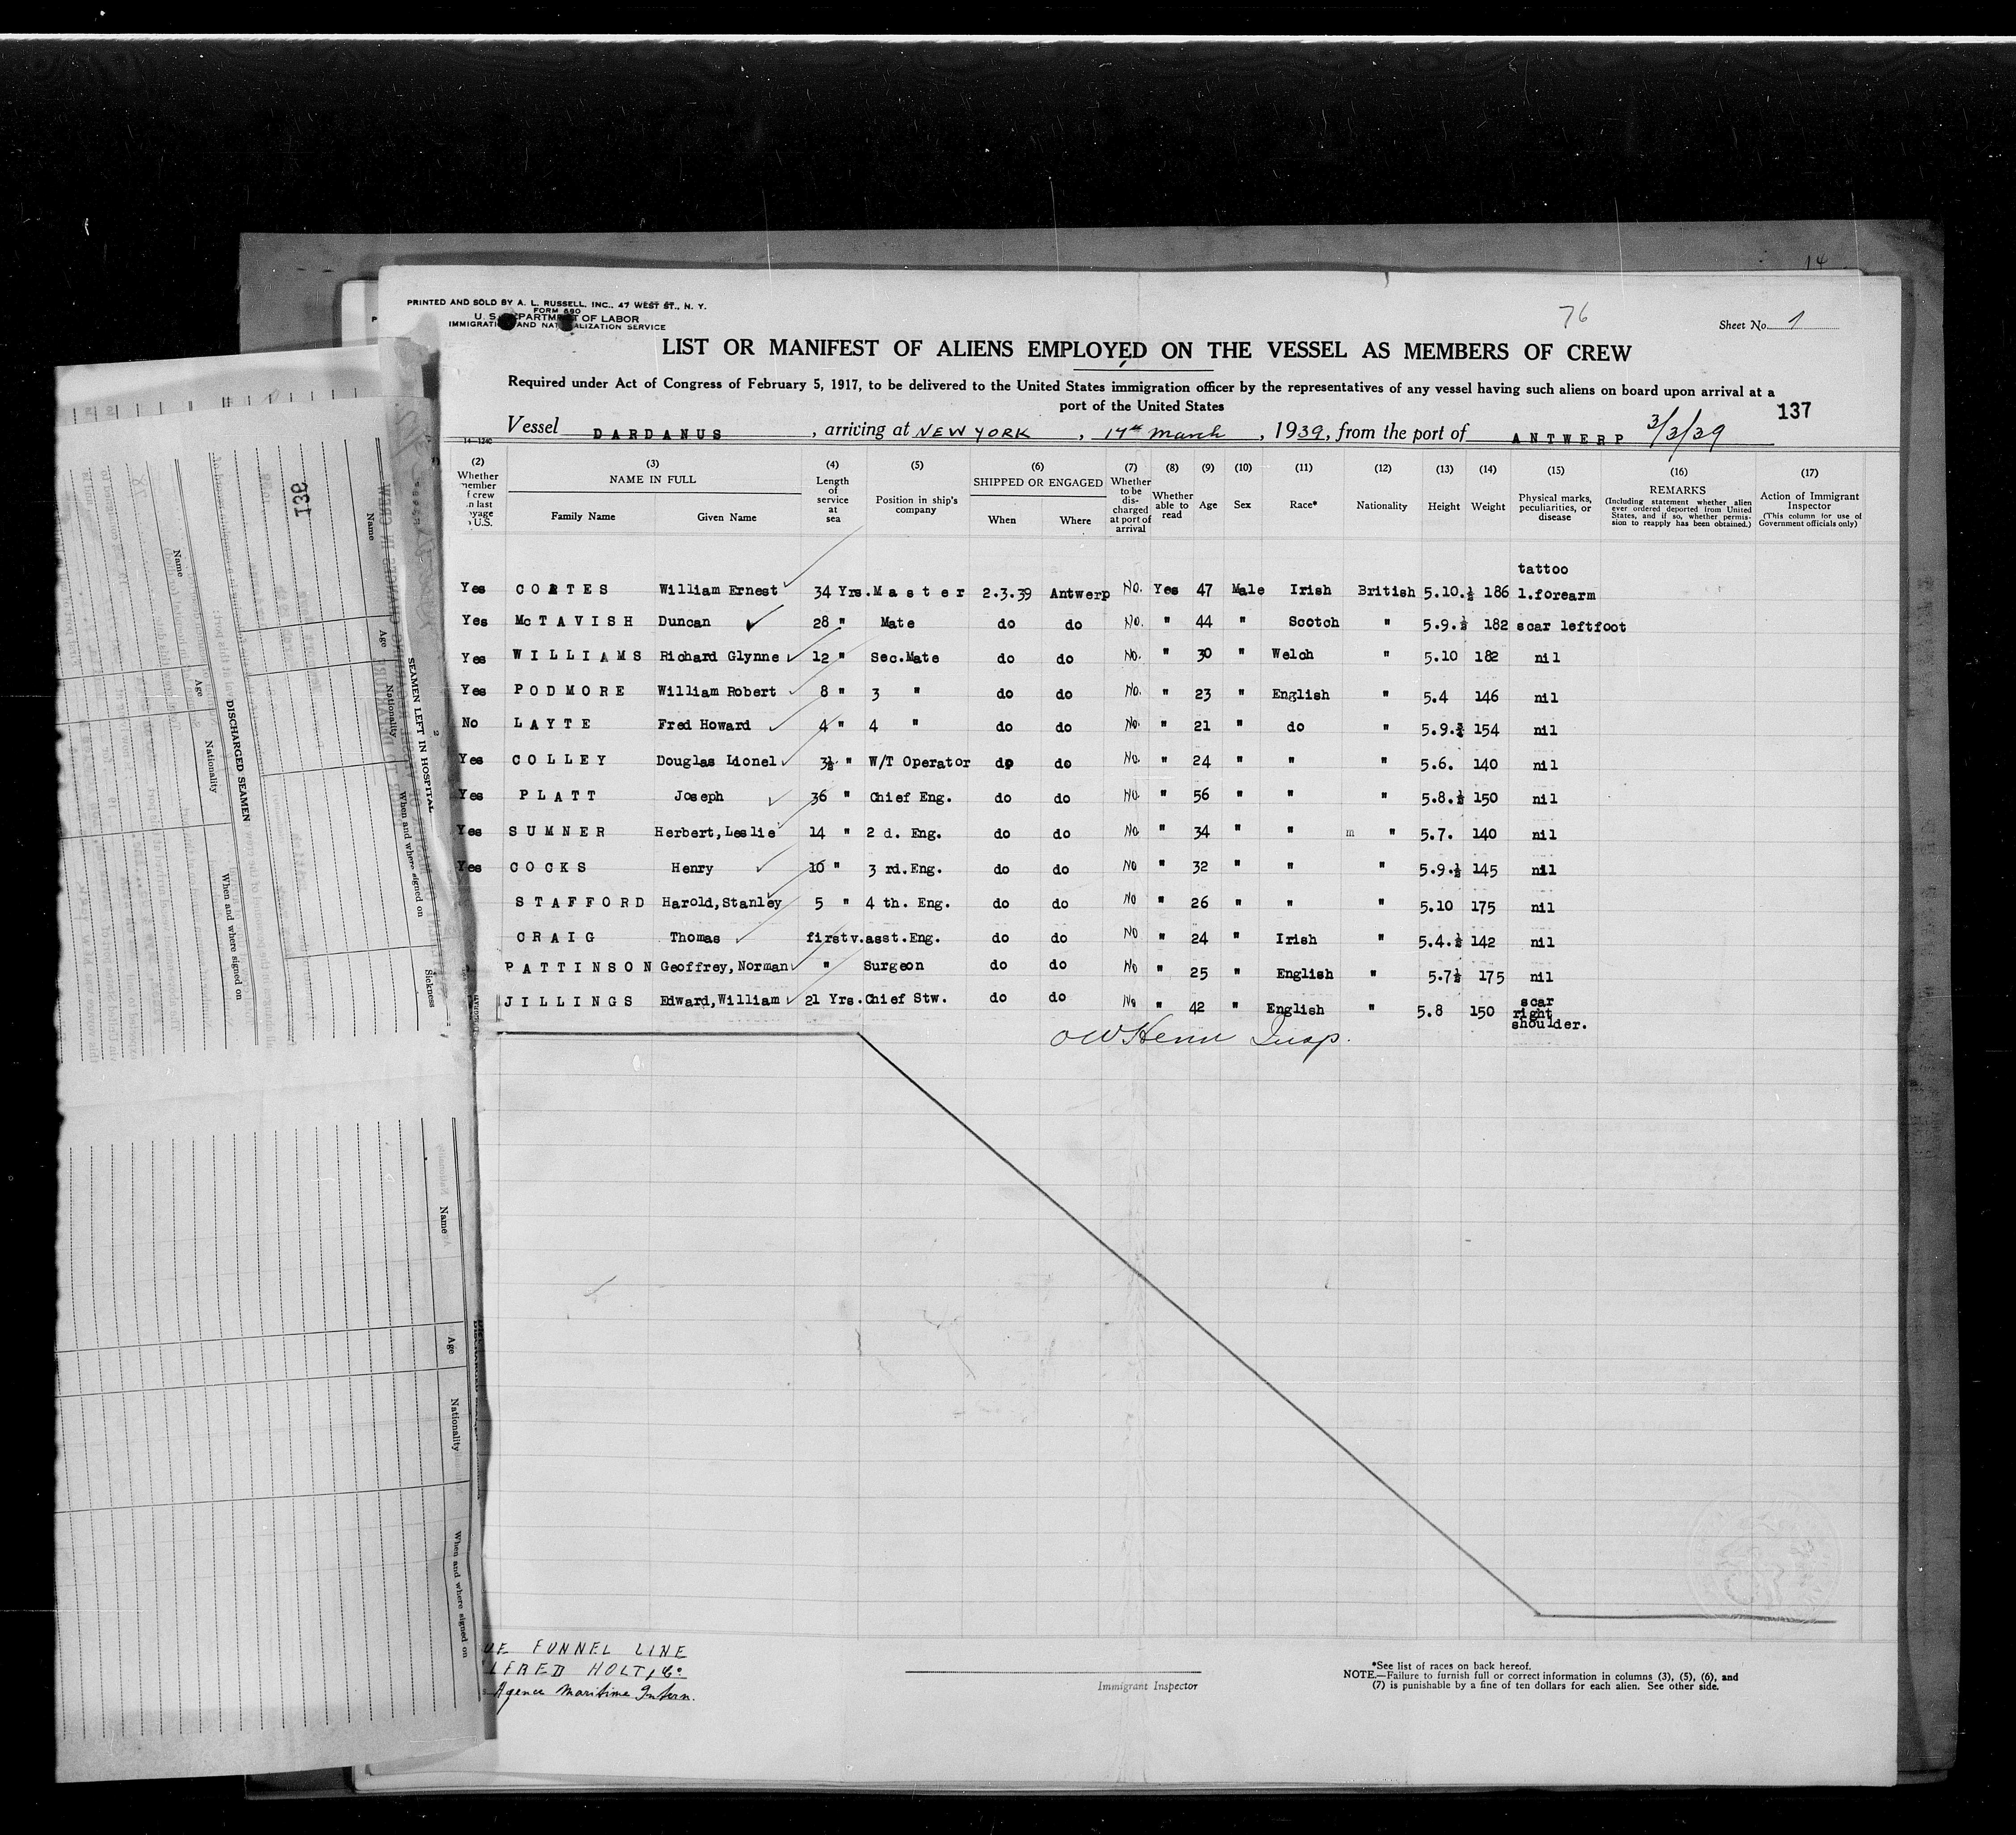 14
PRINTED AND SOLD BY A. L. RUSSELL, INC., 47 WEST ST., N. Y.
FORM 680
U. S. DEPARTMENT OF LABOR
IMMIGRATION AND NATURALIZATION SERVICE
76
Sheet No. 1
LIST OR MANIFEST OF ALIENS EMPLOYED ON THE VESSEL AS MEMBERS OF CREW
Required under Act of Congress of February 5, 1917, to be delivered to the United States immigration officer by the representatives of any vessel having such aliens on board upon arrival at a
port of the United States
137
Vessel DARDANUS, arriving at NEW YORK, 17th March, 1939, from the port of ANTWERP 3/3/39
(2) (3) (4) (5) (6) (7) (8) (9) (10) (11) (12) (13) (14) (15) (16) (17)
Whether member of crew on last voyage to U.S. NAME IN FULL Family Name Given Name Length of service at sea Position in ship's company SHIPPED OR ENGAGED When Where Whether to be discharged at port of arrival Whether able to read Age Sex Race* Nationality Height Weight Physical marks, peculiarities, or disease REMARKS (Including statement whether alien ever ordered deported from United States, and if so, whether permission to reapply has been obtained.) Action of Immigrant Inspector (This column for use of Government officials only)
tattoo
Yes COATES William Ernest 34 Yrs. Master 2.3.39 Antwerp No. Yes 47 Male Irish British 5.10.½ 186 l.forearm
Yes McTAVISH Duncan 28 " Mate do do No. " 44 " Scotch " 5.9.½ 182 scar leftfoot
Yes WILLIAMS Richard Glynne 12 " Sec.Mate do do No. " 30 " Welch " 5.10 182 nil
Yes PODMORE William Robert 8 " 3 " do do No. " 23 " English " 5.4 146 nil
No LAYTE Fred Howard 4 " 4 " do do No. " 21 " do " 5.9.¾ 154 nil
Yes COLLEY Douglas Lionel 3½ " W/T Operator do do No. " 24 " " " 5.6. 140 nil
Yes PLATT Joseph 36 " Chief Eng. do do No. " 56 " " " 5.8.½ 150 nil
Yes SUMNER Herbert,Leslie 14 " 2 d. Eng. do do No " 34 " " m " 5.7. 140 nil
Yes COCKS Henry 10 " 3 rd.Eng. do do No " 32 " " " 5.9.½ 145 nil
STAFFORD Harold,Stanley 5 " 4 th. Eng. do do No " 26 " " " 5.10 175 nil
CRAIG Thomas firstv.asst.Eng. do do No " 24 " Irish " 5.4.½ 142 nil
PATTINSON Geoffrey,Norman " Surgeon do do No " 25 " English " 5.7½ 175 nil
JILLINGS Edward,William 21 Yrs. Chief Stw. do do No " 42 " English " 5.8 150 scar
right
shoulder.
Insp.
UE FUNNEL LINE
LFRED HOLT & Co
Agence Maritime Intern.
Immigrant Inspector
*See list of races on back hereof.
NOTE.—Failure to furnish full or correct information in columns (3), (5), (6), and
(7) is punishable by a fine of ten dollars for each alien. See other side.
Name
Age
Nationality
When and where signed on
Sickness
SEAMEN LEFT IN HOSPITAL
Name
Age
Nationality
When and where signed on
DISCHARGED SEAMEN
Name
Age
Nationality
When and where signed on